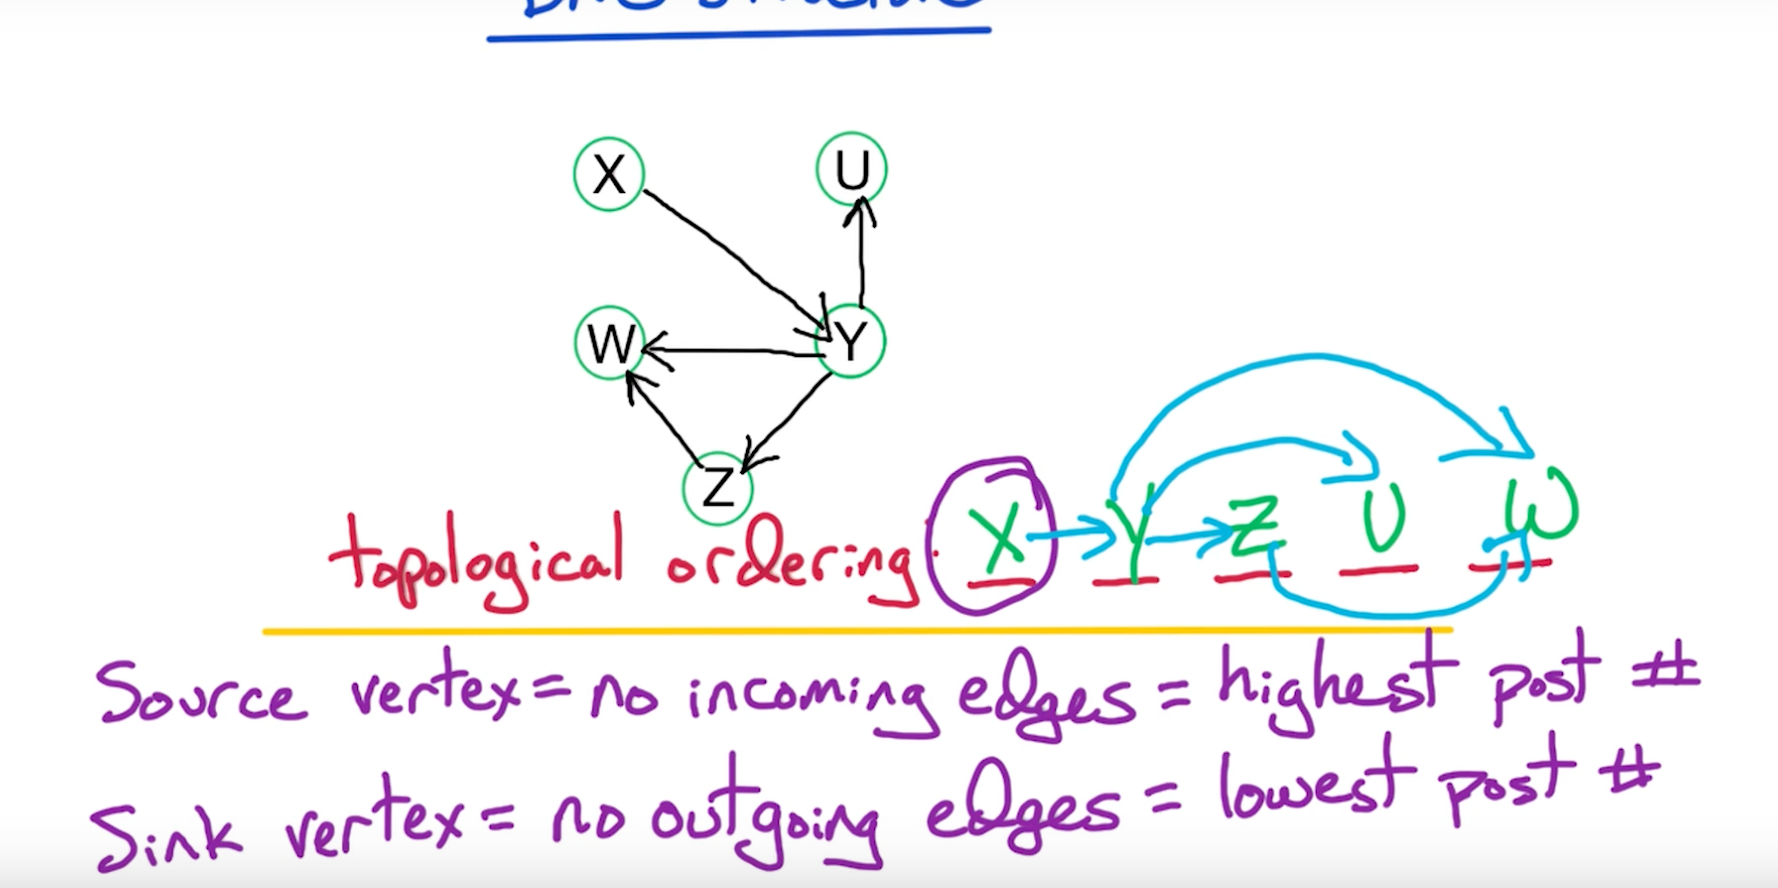 DAG Structure
X
U
W
Y
Z
topological ordering: X Y Z U W
Source vertex = no incoming edges = highest post #
Sink vertex = no outgoing edges = lowest post #